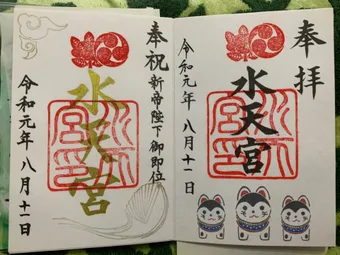 奉拝
水天宮
令和元年八月十一日
水天宮印
奉祝
新帝陛下御即位
水天宮
令和元年八月十一日
水天宮印